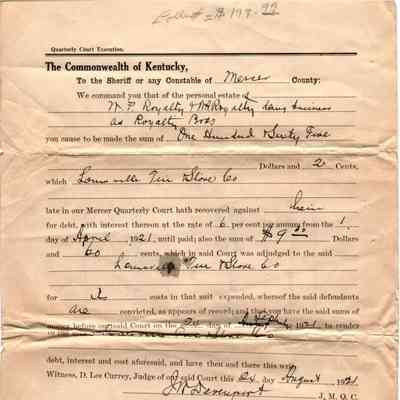 $193.99
Quarterly Court Execution.
The Commonwealth of Kentucky,
To the Sheriff or any Constable of Mercer County:
We command you that of the personal estate of
W. P. Royalty & Royalty doing business
as Royalty Bros
you cause to be made the sum of One Hundred & Sixty Five
Dollars and 2 Cents,
which Louisville Tin & Stove Co
late in our Mercer Quarterly Court hath recovered against
for debt, with interest thereon at the rate of 6 per cent per annum from the 1
day of April 1921, until paid; also the sum of $9.00 Dollars
and 60 cents, which in said Court was adjudged to the said
Louisville Tin & Stove Co
for its costs in that suit expended, whereof the said defendants
are convicted, as appears of record; and that you have the said sums of
money before our said Court on the day of 1921 to render
debt, interest and cost aforesaid, and have then and there this writ.
Witness, D. Lee Currey, Judge of our said Court this day August 1921.
J. W. Davenport J. M. Q. C.